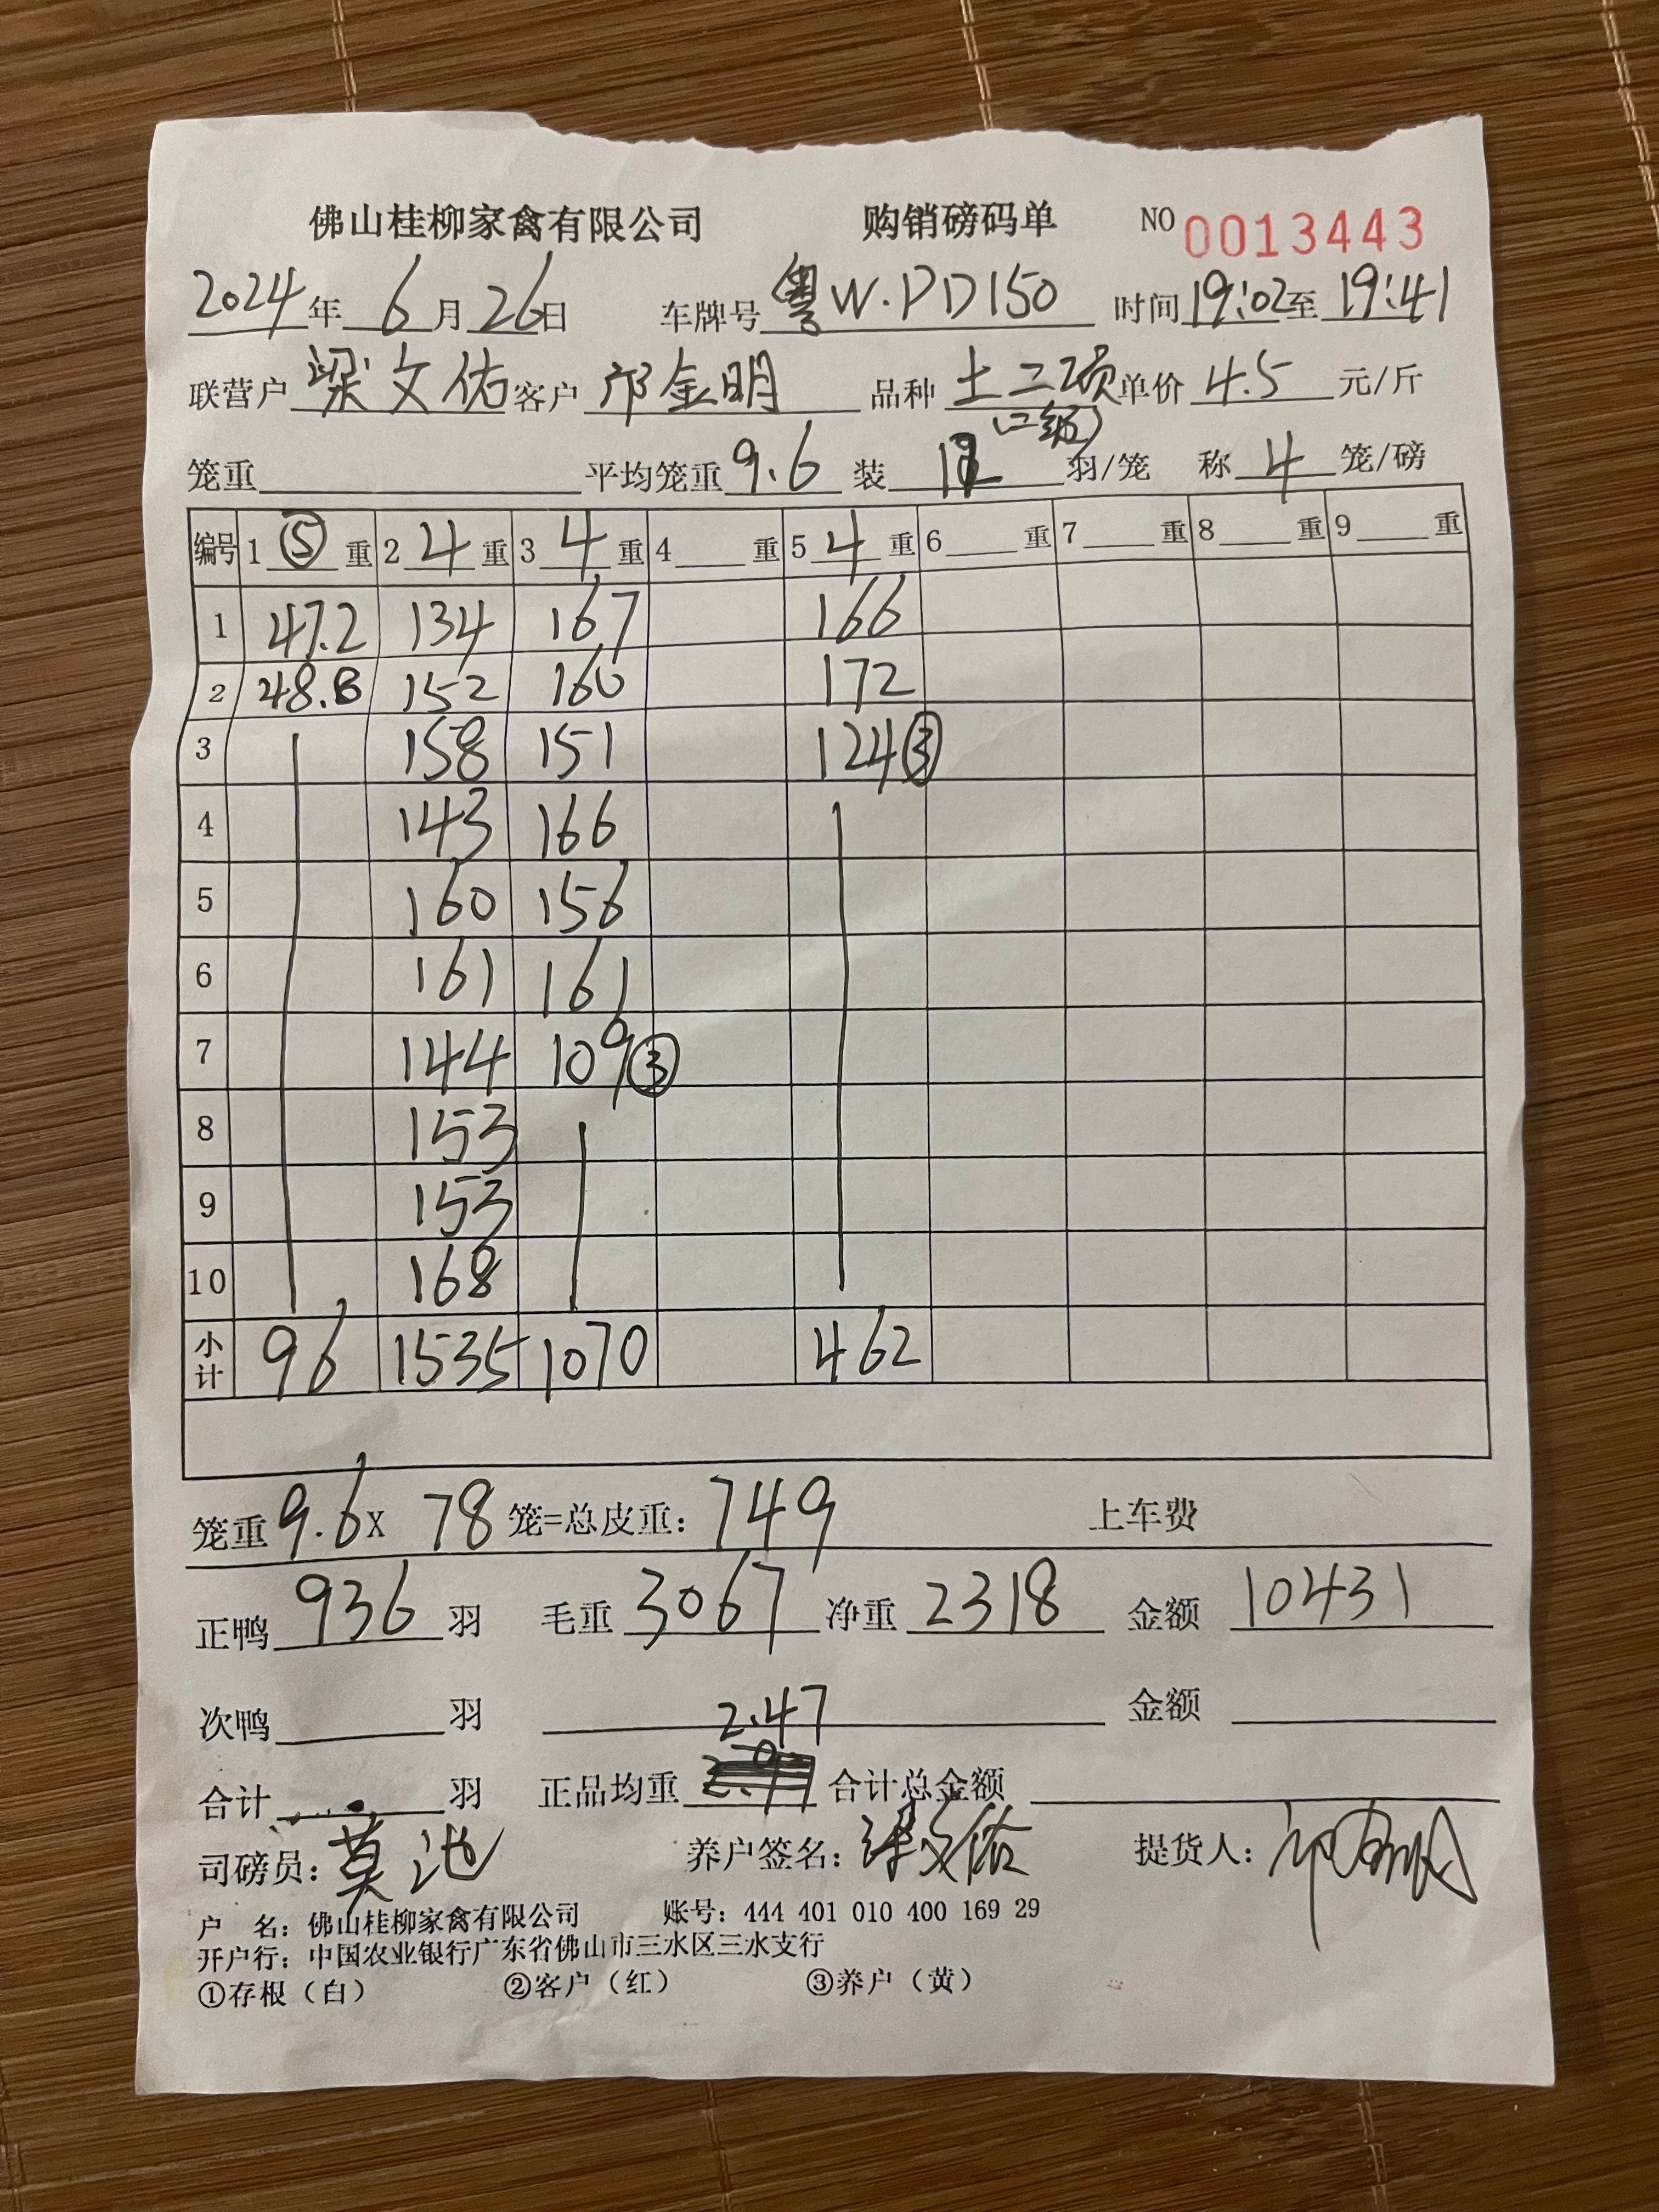 佛山桂柳家禽有限公司 购销磅码单 NO 0013443
2024年 6月26日 车牌号 粤W.PD150 时间19:02至19:41
联营户 梁文佑 客户 邝金明 品种 土二项 单价 4.5 元/斤
(二级)
笼重 平均笼重 9.6 装 12 羽/笼 称 4 笼/磅
编号 1 ⑤ 重 2 4 重 3 4 重 4 重 5 4 重 6 重 7 重 8 重 9 重
1 47.2 134 167 166
2 48.8 152 160 172
3 158 151 124③
4 143 166
5 160 156
6 161 161
7 144 109③
8 153
9 153
10 168
小计 96 1535 1070 462
笼重 9.6 X 78 笼=总皮重: 749 上车费
正鸭 936 羽 毛重 3067 净重 2318 金额 10431
次鸭 羽 2.47 金额
合计 羽 正品均重 合计总金额
司磅员: 莫池 养户签名: 梁文佑 提货人:
户 名: 佛山桂柳家禽有限公司 账号: 444 401 010 400 169 29
开户行: 中国农业银行广东省佛山市三水区三水支行
①存根（白） ②客户（红） ③养户（黄）